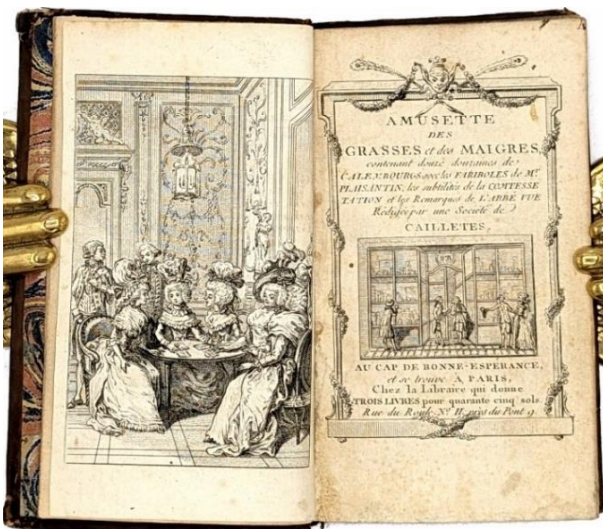 AMUSETTE
DES
GRASSES et des MAIGRES,
contenant douze douzaines de
CALEMBOURGS avec les FARIBOLES de Mr.
PLAISANTIN, les subtilités de la COMTESSE
TATION et les Remarques de L'ABBÉ VUE
Rédigée par une Societé de
CAILLETES,
AU CAP DE BONNE-ESPERANCE,
et se trouve À PARIS,
Chez la Libraire qui donne
TROIS LIVRES pour quarante cinq sols
Rue du Roule No. près du Pont 9.